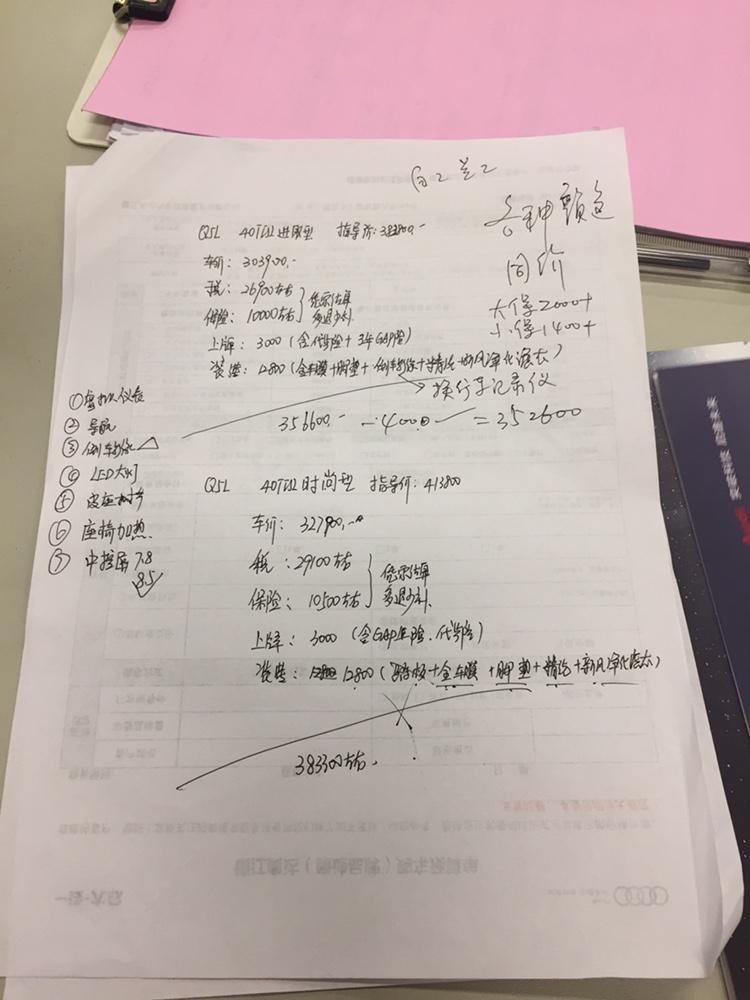 各种颜色
同价
大保2000+
小保1400+
Q5L 40TFSI进取型 指导价:383800.-
车价: 303900.-
税: 26900左右
保险: 10000左右
凭票结算
多退少补
上牌: 3000 (含代办险+3年GAP险)
装装: 12800 (全车膜+脚垫+倒车影像+精洗+新风净化滤芯)
换行车记录仪
356600.- -4000 =352600
①虚拟仪表
②导航
③倒车影像
④LED大灯
⑤皮座椅
⑥座椅加热.
⑦中控屏7.8
8.5
Q5L 40TFSI时尚型 指导价: 413800
车价: 327900.-
税: 29100左右
保险: 10500左右
凭票结算
多退少补.
上牌: 3000 (含GAP险.代办险)
12800 (全车膜+脚垫+精洗+新风净化滤芯)
383300左右.